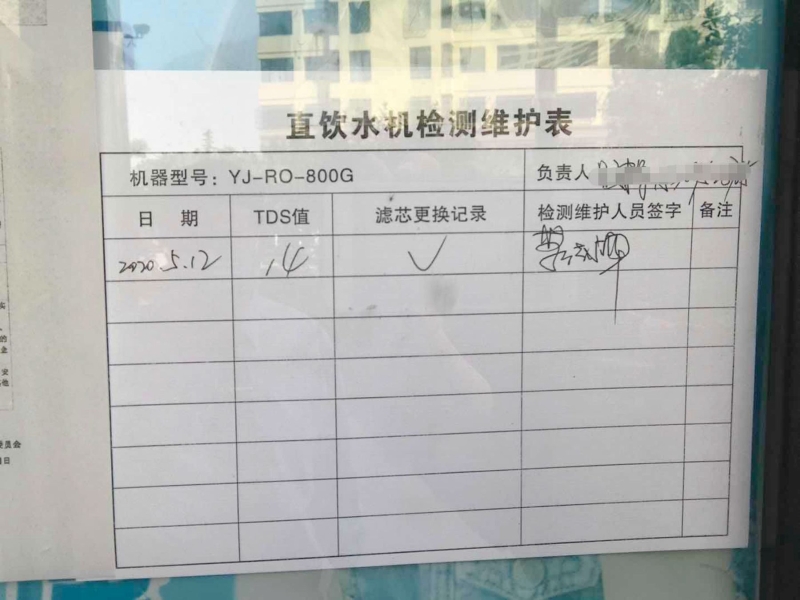 直饮水机检测维护表
机器型号：YJ-RO-800G 负责人
日 期 TDS值 滤芯更换记录 检测维护人员签字 备注
2020.5.12 14 ✓